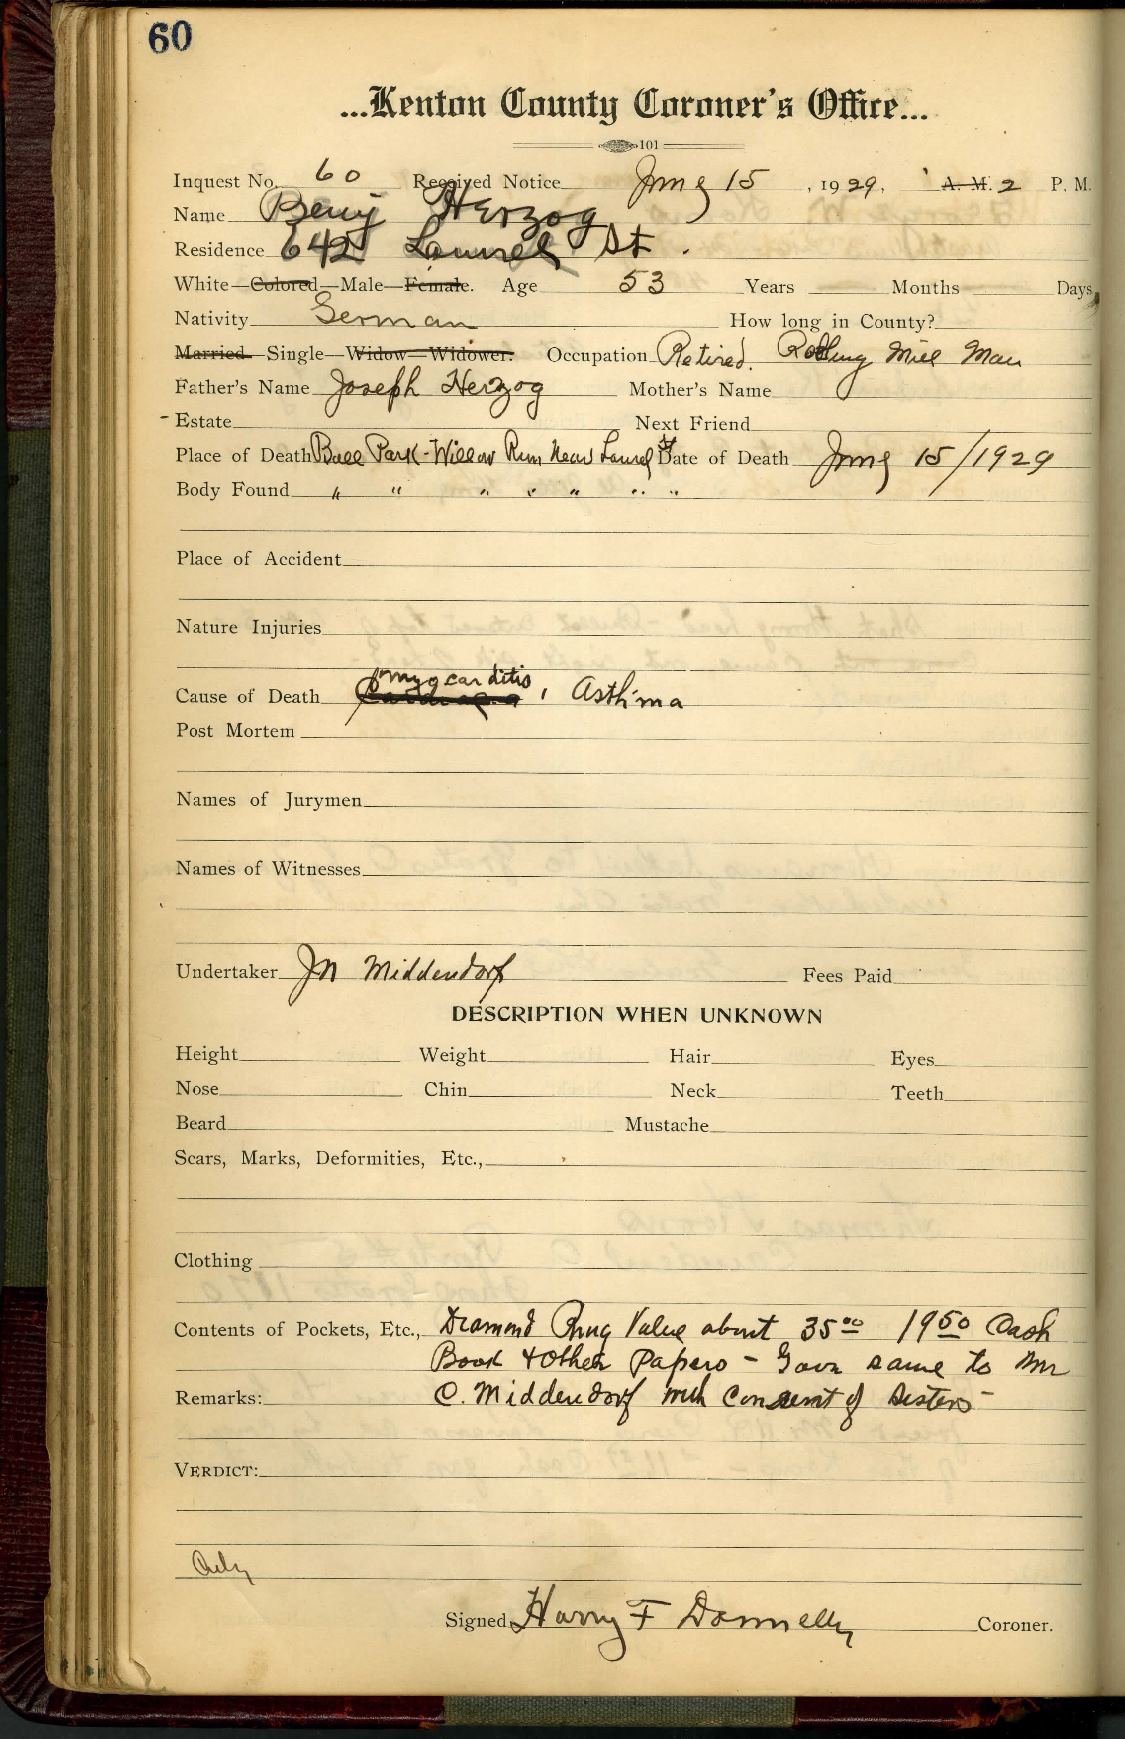 60
...Kenton County Coroner's Office...
101
Inquest No. 60 Received Notice June 15, 1929, A. M. 2 P. M.
Name Benj Herzog
Residence 642 Laurel St.
White—Colored—Male—Female. Age 53 Years Months Days
Nativity German How long in County?
Married—Single—Widow—Widower. Occupation Retired. Rolling Mill Man
Father's Name Joseph Herzog Mother's Name
Estate Next Friend
Place of Death Ball Park - Willow Run Near Laurel St Date of Death June 15/1929
Body Found " " " " " " "
Place of Accident
Nature Injuries
myocarditis
Cause of Death , Asthma
Post Mortem
Names of Jurymen
Names of Witnesses
Undertaker JN Middendorf Fees Paid
DESCRIPTION WHEN UNKNOWN
Height Weight Hair Eyes
Nose Chin Neck Teeth
Beard Mustache
Scars, Marks, Deformities, Etc.,
Clothing
Contents of Pockets, Etc., Diamond Ring Value about 35 00 19 50 Cash
Book + Other Papers - Gave same to Mr
Remarks: C. Middendorf with Consent of Sisters -
VERDICT:
Signed Harry F Donnelly Coroner.